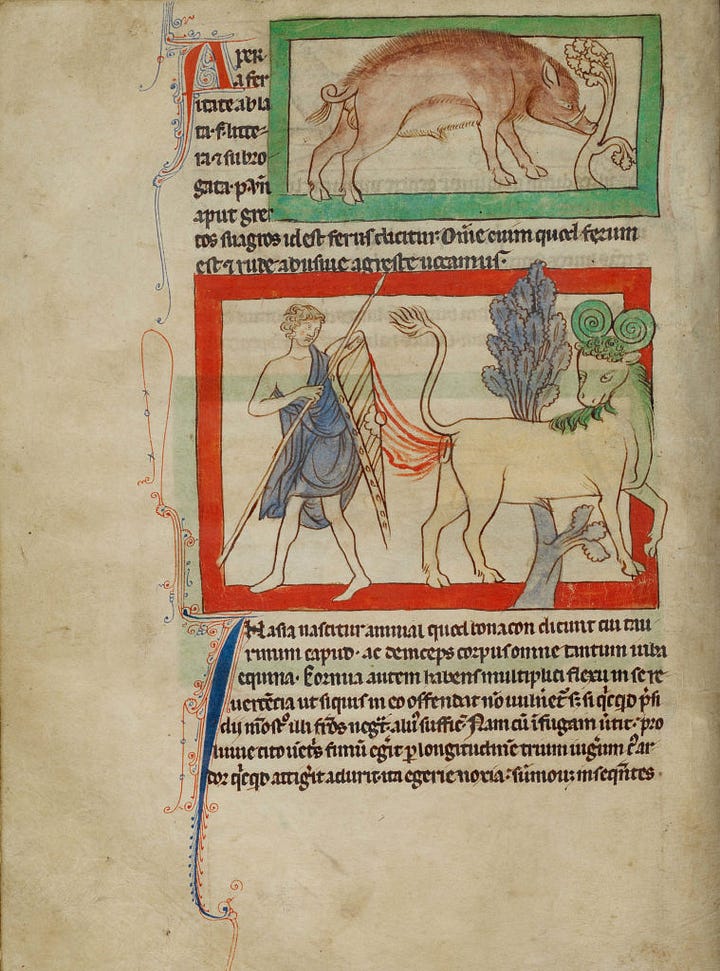 Aper
a fer
itate abla
ta · f · litte-
ra · ⁊ subro
gata · p · vn̄
aput gre
cos suagros id est ferus dicitur. Om̄e enim quod ferum
est ⁊ rude abusiue agreste uocamus.
In asia nascitur animal quod bonacon dicunt cui tau
rinum capud · ac deinceps corpus omne tantum iuba
equina · Cornua autem habens multiplici flexu in se re
uertencia ut siquis in eo offendat nō uulnet̄ s; si qc̄qd p̄si
dii illi frōs negt · aluꝰ sufficit. Nam cū ī fugam ūtit · pro
luuie cito uent̄s fimū egit p longitudinē trium iugum cꝰ ar
dor qc̄qd attigit adurit · ita egerie noxia submou; inseqn̄tes ·